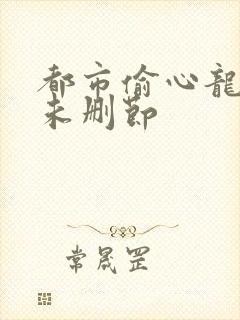 都市偷心龍
未删節
常晟罡